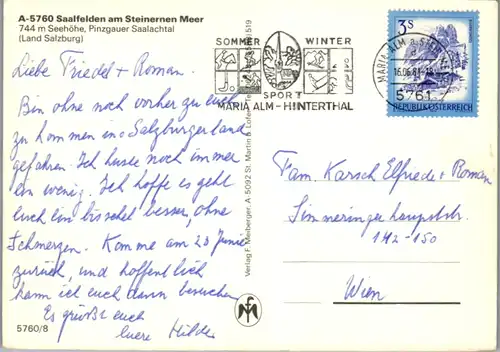 A-5760 Saalfelden am Steinernen Meer
744 m Seehöhe, Pinzgauer Saalachtal
(Land Salzburg)
Liebe Friedel + Roman.
Bin ohne noch vorher zu euch
zu kommen ins Salzburgerland
gefahren. Ich huste noch immer
ein wenig. Ich hoffe es geht
euch ein bisschel besser, ohne
Schmerzen. Komme am 23 Juni
zurück, und hoffentlich
kann ich euch dann besuchen
Es grüßt euch
Eure Hilde
5760/8
Verlag F. Meiberger, A-5092 St. Martin b. Lofer
SOMMER WINTER
SPORT
MARIA ALM-HINTERTHAL
MARIA ALM a. STEIN. MEER
5761
3S
REPUBLIK ÖSTERREICH
Fam. Karsch Elfriede + Roman
Simmeringer hauptstr.
142-150
Wien